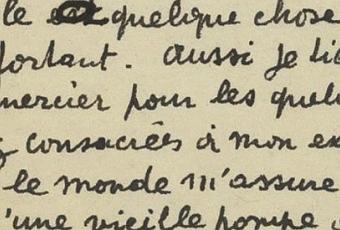 le quelque chose
portant. Aussi je
mercier pour les
consacrées à mon
le monde m'assure
'une vieille pompe